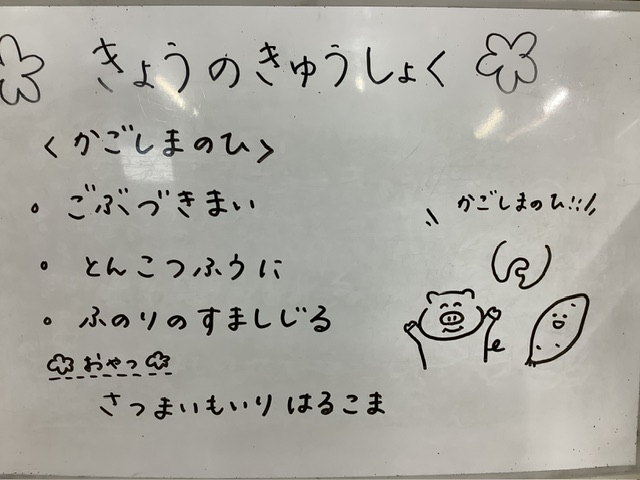 きょうのきゅうしょく
<かごしまのひ>
・ごぶづきまい
・とんこつふうに
・ふのりのすましじる
おやつ
さつまいもいりはるこま
かごしまのひ!!